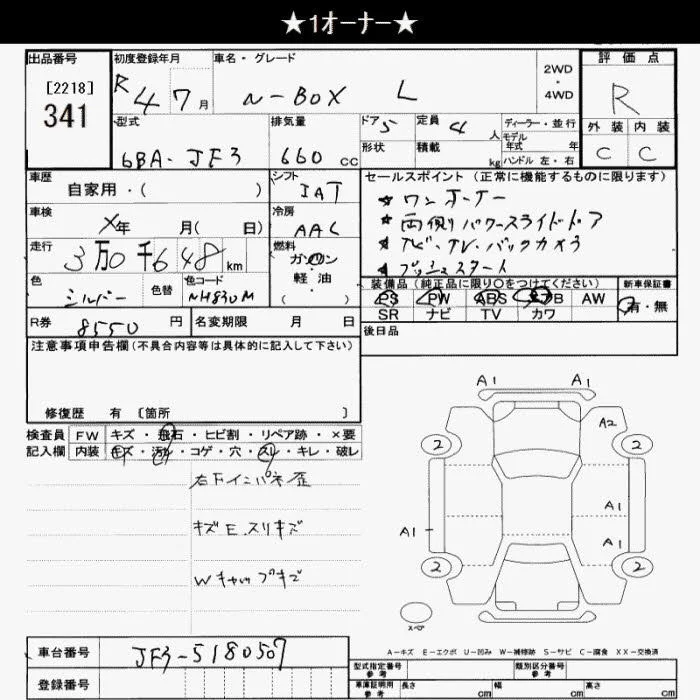 ★1オーナー★
出品番号
[2218]
341
初度登録年月
R4 7月
車名・グレード
N-BOX L
2WD
・
4WD
評価点
R
外装 内装
C C
型式
6BA-JF3
排気量
660 CC
ドア 5
形状
定員 4 人
積載 kg
ディーラー・並行
モデル
年式 年
ハンドル 左・右
車歴
自家用・( )
シフト
IAT
車検
X年 月( 日)
冷房
AAC
走行
3万0千648km
燃料
ガソリン
・
軽油
( )
色
シルバー
色替
色コード
NH830M
R券 8550 円
名変期限 月 日
セールスポイント (正常に機能するものに限ります)
★ワンオーナー
★両側パワースライドドア
★ナビ・TV・バックカメラ
★プッシュスタート
装備品(純正品に限り○をつけてください)
新車保証書
PS PW ABS エアB AW
SR ナビ TV カワ
有・無
後日品
注意事項申告欄(不具合内容等は具体的に記入して下さい)
修復歴 有 [箇所 ]
検査員
記入欄
FW キズ・飛石・ヒビ割・リペア跡・×要
内装 キズ・汚れ・コゲ・穴・スレ・キレ・破レ
右下インパネ歪
キズE.スリキズ
Wキャップキズ
A1 A1
A2
2 2
A1
A1
A1
2 2
スペア
A-キズ E-エクボ U-凹み W-補修跡 S-サビ C-腐食 XX-交換済
車台番号 JF3-5180507
登録番号
型式指定番号
参考
類別区分番号
参考
車庫証明用
参考
長さ cm 幅 cm 高さ cm